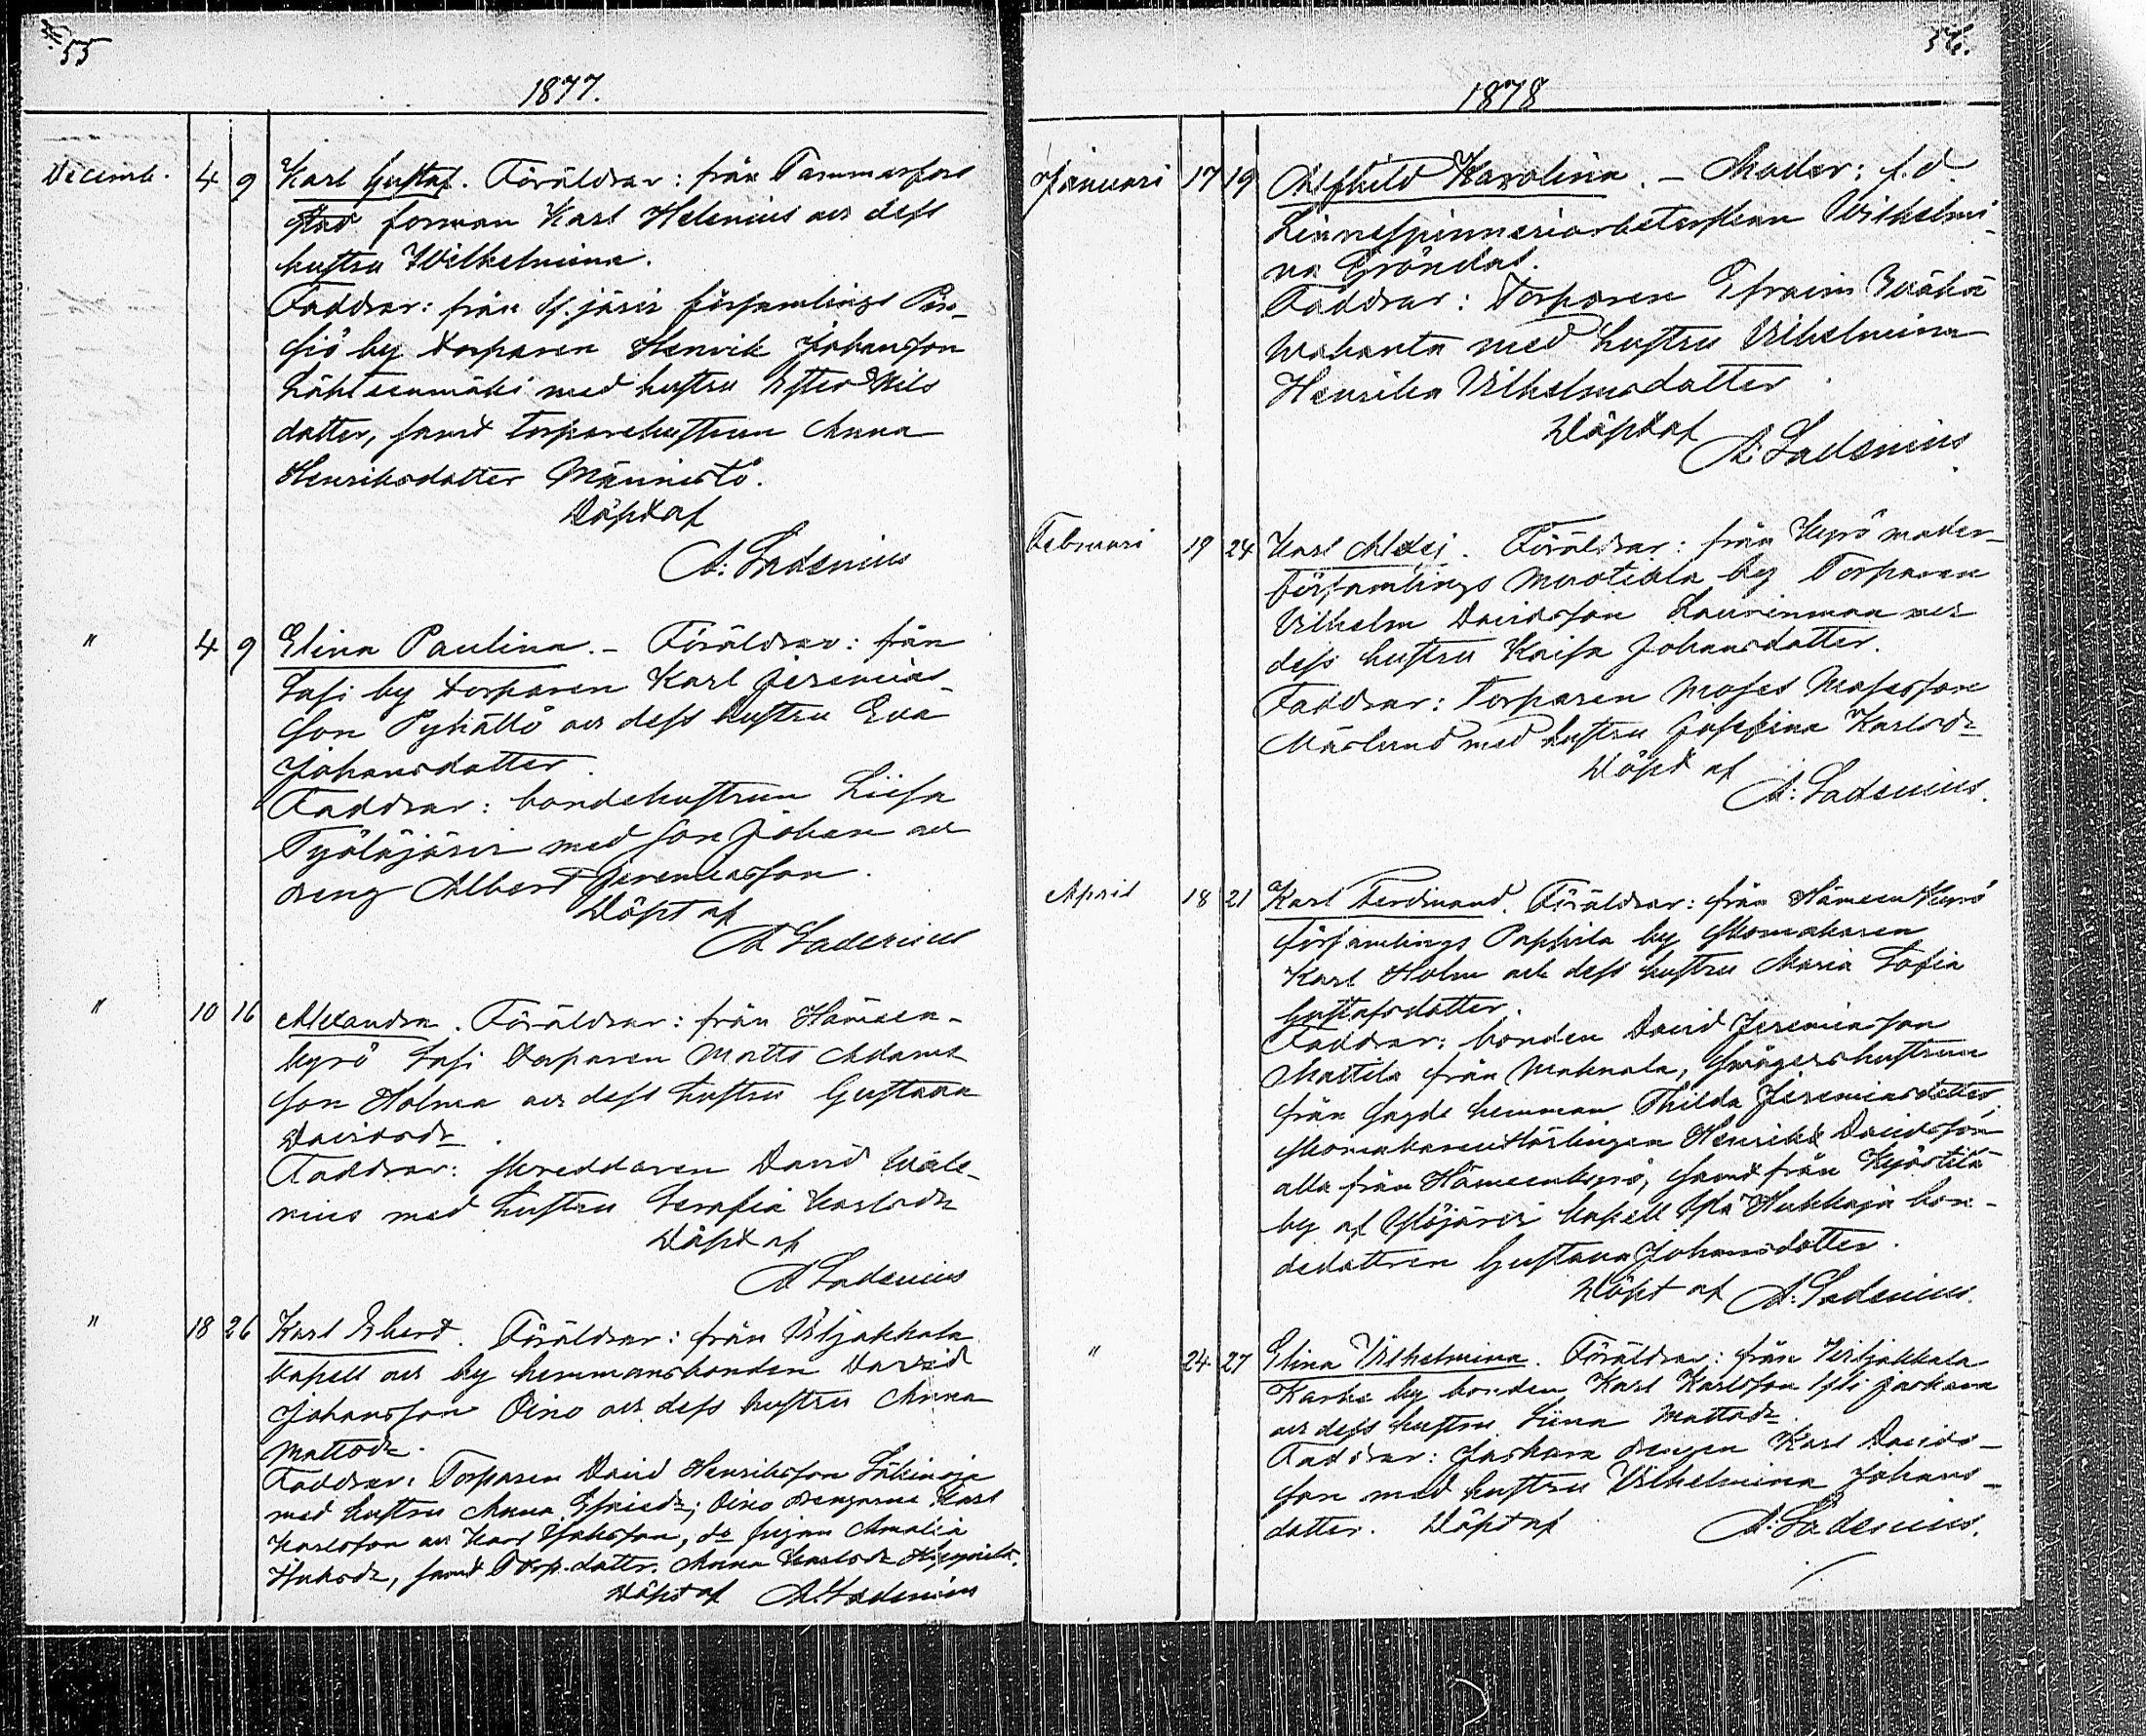 55
1877.
Decemb. 4 9 Karl Gustaf. Föräldrar: från Tammerfors
stad forman Karl Helenius och dess
hustru Wilhelmina.
Faddrar: från Y.järvi församlings Pin-
siö by torparen Henrik Johansson
Lähteenmäki med hustru Ester Nils
dotter, samt torparehustrun Anna
Henriksdotter Männistö.
Döpt af
A: Ladenius
" 4 9 Elina Paulina. – Föräldrar: från
Sasi by torparen Karl Jeremias-
son Pyhältö och dess hustru Eva
Johansdotter.
Faddrar: bondehustrun Liisa
Työläjärvi med son Johan och
dreng Albert Jeremiasson.
Döpt af
A Ladenius
" 10 16 Alexandra. Föräldrar: från Hämeen-
kyrö Sasi torparen Matts Adams
son Holma och dess hustru Gustava
Davidsdr.
Faddrar: skreddaren David Wale-
nius med hustru Serafia Karlsdr
Döpt af
A Ladenius
" 18 26 Karl Ebert. Föräldrar: från Viljakkala
kapell och by hemmansbonden David
Johansson Oino och dess hustru Anna
Mattsdr.
Faddrar: Torparen David Henriksson
med hustru Anna; Oino drengarne Karl
Karlsson och Karl, do pigan Amalia
samt Torp. dottr. Anna Karlsdr
Döpt af A. Ladenius
1878
Januari 17 19 Alfhild Karolina. – Moder: f.d.
Linnespinneriarbeterskan Wilhelmi-
na Gröndal.
Faddrar: Torparen Efraim
Wahanta med hustru Vilhelmina
Henrika Vilhelmsdotter.
Döpt af
A: Ladenius
Februari 19 24 Karl Alexej. Föräldrar: från Kyrö moder-
församlings Muotiala by Torparen
Vilhelm Davidsson Laurinmaa och
dess hustru Kaisa Johansdotter.
Faddrar: Torparen Moses Mosesson
med hustru Josefina Karlsdr
Döpt af
A: Ladenius.
April 18 21 Karl Ferdinand. Föräldrar: från Hämeen Kyrö
församlings Pappila by skomakaren
Karl Holm och dess hustru Maria Sofia
Gustafsdotter.
Faddrar: bonden David Jeremiasson
Mattila från Mahnala, svågershustrun
från sagde hemman Thilda Jeremiasdotter,
skomakarelärlingen Henrik Davidsson
alla från Hämeenkyrö, samt från Keijärvi
by af Ylöjärvi kapell Ylä Hukkaja bon-
dedottren Gustava Johansdotter.
Döpt af A: Ladenius.
" 24 27 Elina Vilhelmina. Föräldrar: från Viljakkala
Karhe by bonden Karl Karlsson Yli Jaskara
och dess hustru Liina Mattsdr.
Faddrar: Jaskara drengen Karl Davids-
son med hustru Vilhelmina Johans-
dotter. Döpt af A: Ladenius.